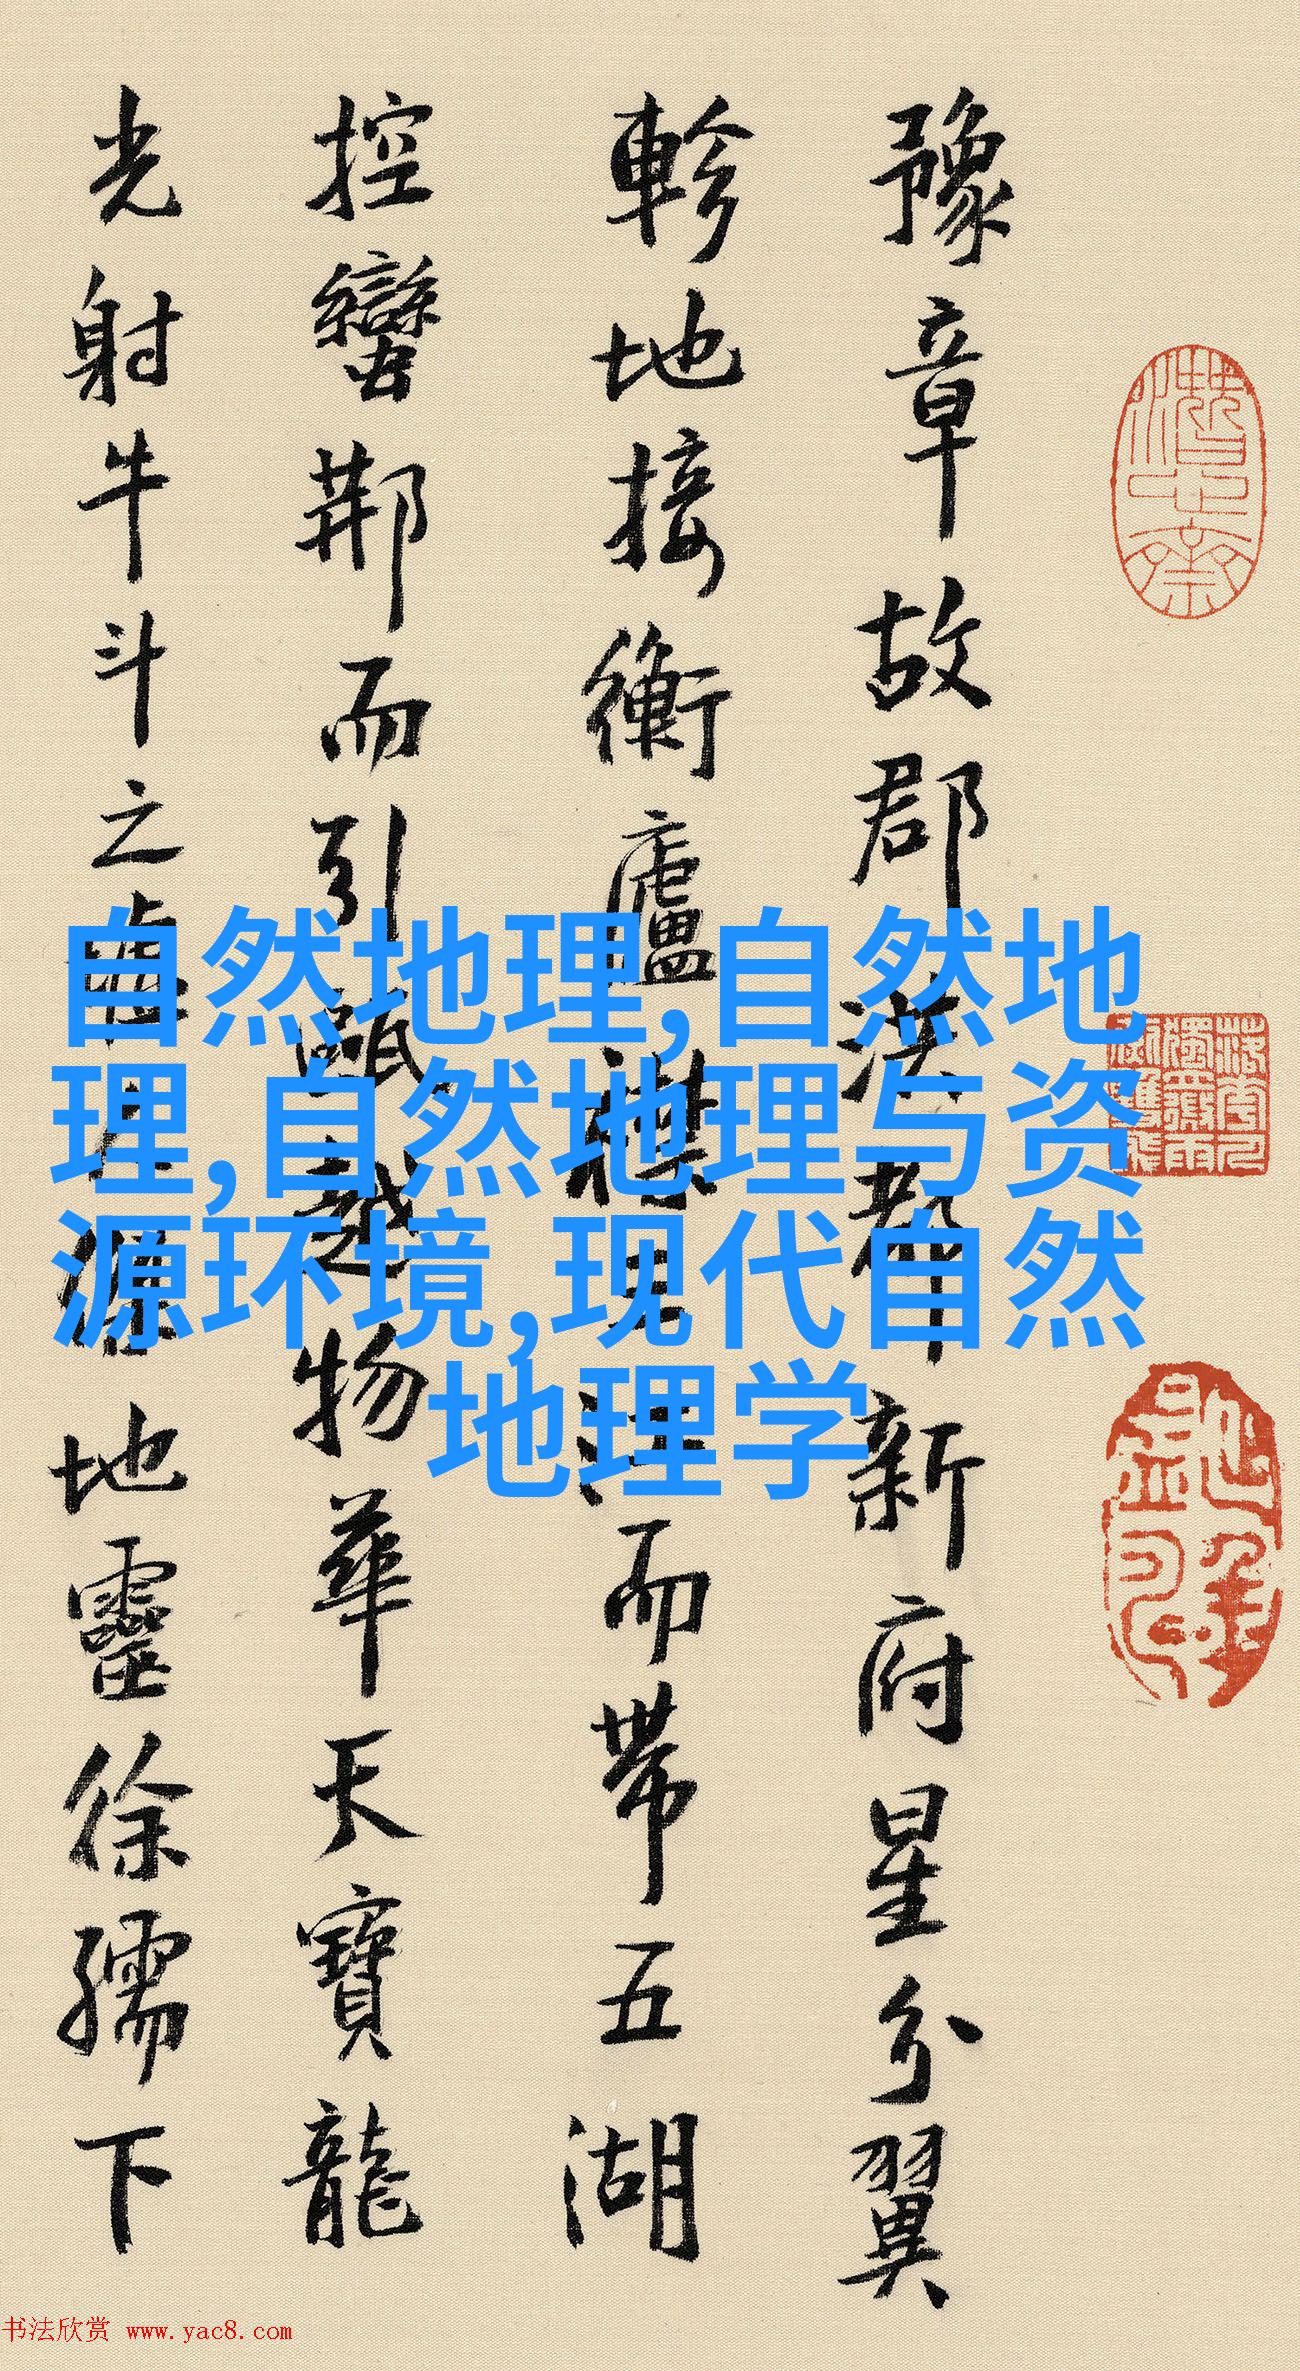 豫章故郡洪都新府星分翼
軫地接衡廬襟三江而帶五湖
控蠻荊而引甌越物華天寶龍
光射牛斗之墟人傑地靈徐孺下
自然地理,自然地
理,自然地理与资
源环境,现代自然
地理学
书法欣赏 www.yac8.com